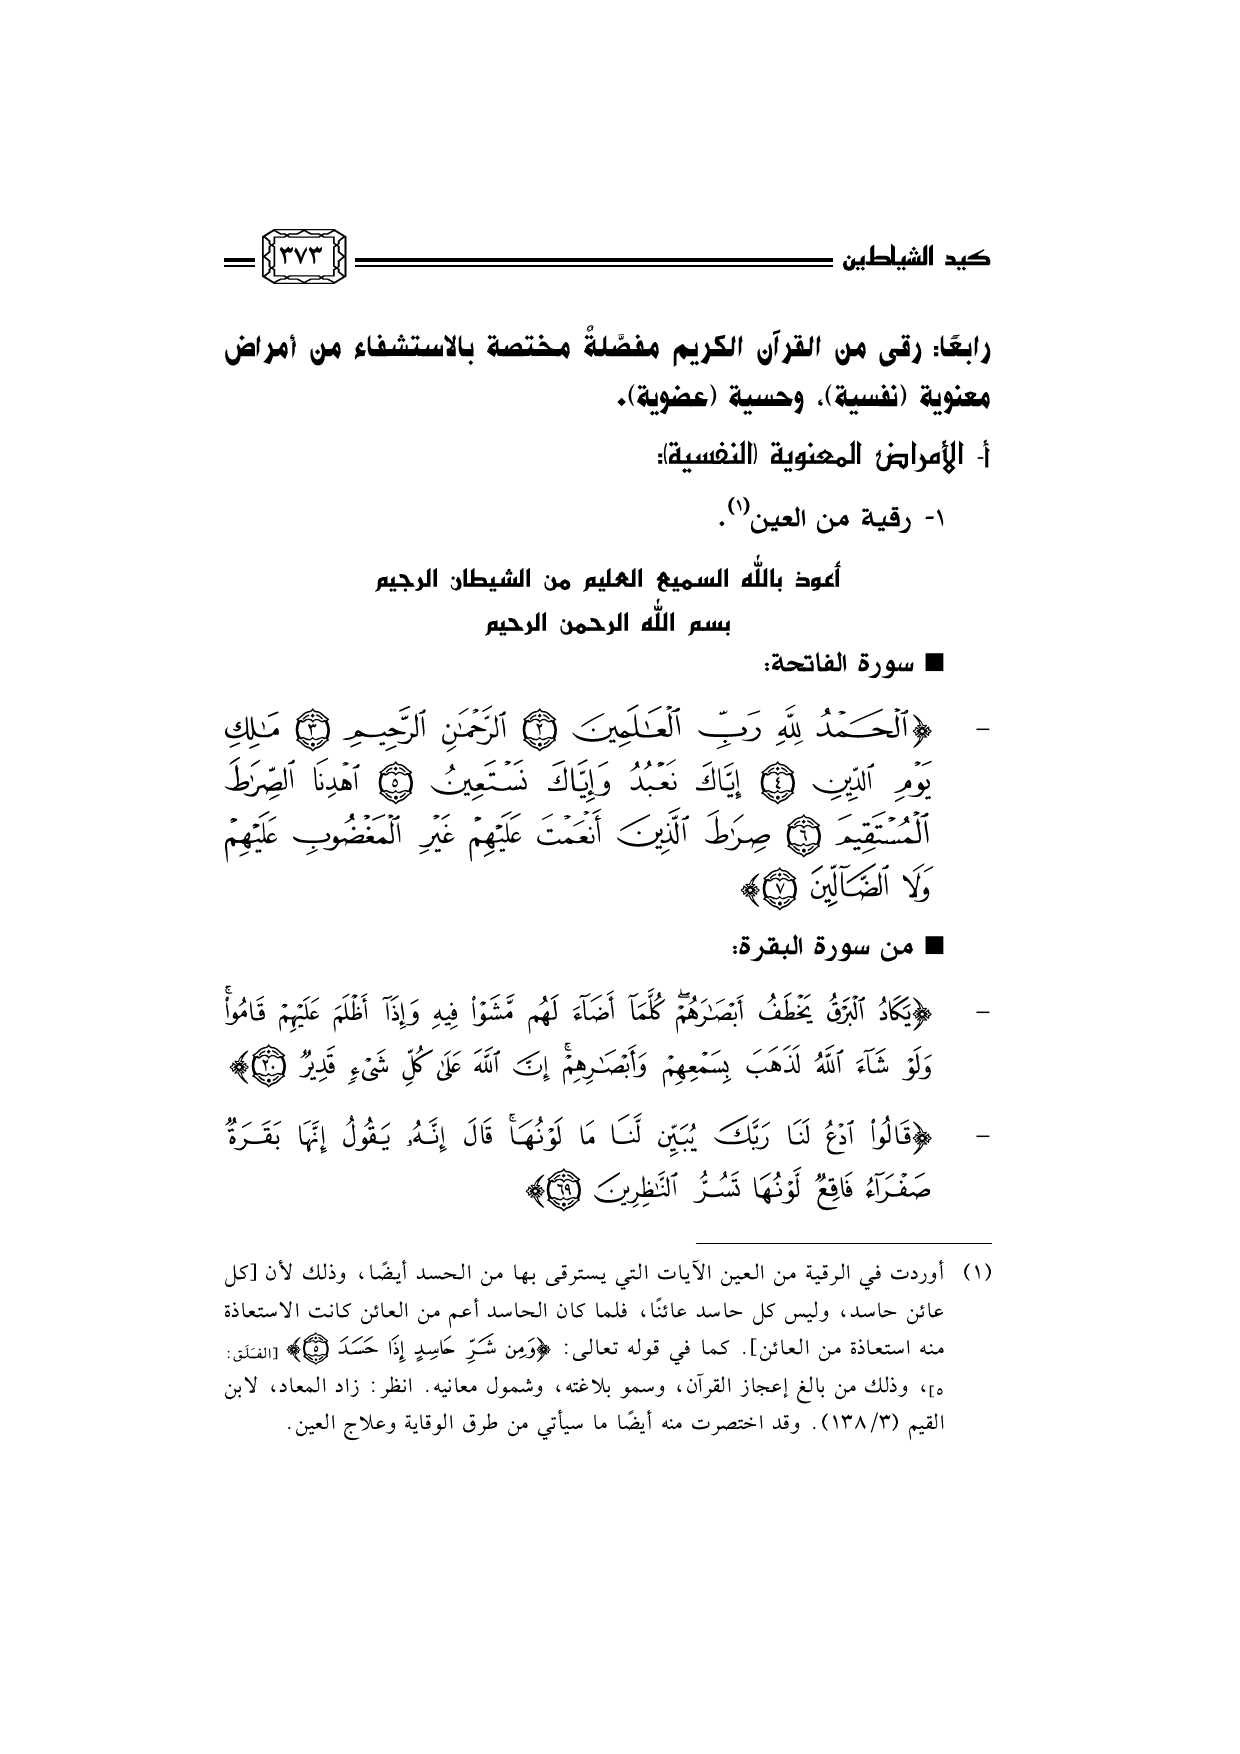 كيد الشياطين ٣٧٣
رابعًا: رقى من القرآن الكريم مفصَّلةٌ مختصة بالاستشفاء من أمراض
معنوية (نفسية)، وحسية (عضوية).
أ- الأمراض المعنوية (النفسية):
١- رقية من العين(١).
أعوذ بالله السميع العليم من الشيطان الرجيم
بسم الله الرحمن الرحيم
■ سورة الفاتحة:
- ﴿ٱلْحَمْدُ لِلَّهِ رَبِّ ٱلْعَـٰلَمِينَ ٢ ٱلرَّحْمَـٰنِ ٱلرَّحِيمِ ٣ مَـٰلِكِ
يَوْمِ ٱلدِّينِ ٤ إِيَّاكَ نَعْبُدُ وَإِيَّاكَ نَسْتَعِينُ ٥ ٱهْدِنَا ٱلصِّرَٰطَ
ٱلْمُسْتَقِيمَ ٦ صِرَٰطَ ٱلَّذِينَ أَنْعَمْتَ عَلَيْهِمْ غَيْرِ ٱلْمَغْضُوبِ عَلَيْهِمْ
وَلَا ٱلضَّآلِّينَ ٧﴾
■ من سورة البقرة:
- ﴿يَكَادُ ٱلْبَرْقُ يَخْطَفُ أَبْصَـٰرَهُمْۖ كُلَّمَآ أَضَآءَ لَهُم مَّشَوْا۟ فِيهِ وَإِذَآ أَظْلَمَ عَلَيْهِمْ قَامُوا۟ۚ
وَلَوْ شَآءَ ٱللَّهُ لَذَهَبَ بِسَمْعِهِمْ وَأَبْصَـٰرِهِمْۚ إِنَّ ٱللَّهَ عَلَىٰ كُلِّ شَىْءٍ قَدِيرٌ ٢٠﴾
- ﴿قَالُوا۟ ٱدْعُ لَنَا رَبَّكَ يُبَيِّن لَّنَا مَا لَوْنُهَاۚ قَالَ إِنَّهُۥ يَقُولُ إِنَّهَا بَقَرَةٌ
صَفْرَآءُ فَاقِعٌ لَّوْنُهَا تَسُرُّ ٱلنَّـٰظِرِينَ ٦٩﴾
(١) أوردت في الرقية من العين الآيات التي يسترقى بها من الحسد أيضًا، وذلك لأن [كل
عائن حاسد، وليس كل حاسد عائنًا، فلما كان الحاسد أعم من العائن كانت الاستعاذة
منه استعاذة من العائن]. كما في قوله تعالى: ﴿وَمِن شَرِّ حَاسِدٍ إِذَا حَسَدَ ٥﴾ [الفَلَق:
٥]، وذلك من بالغ إعجاز القرآن، وسمو بلاغته، وشمول معانيه. انظر: زاد المعاد، لابن
القيم (٣/ ١٣٨). وقد اختصرت منه أيضًا ما سيأتي من طرق الوقاية وعلاج العين.